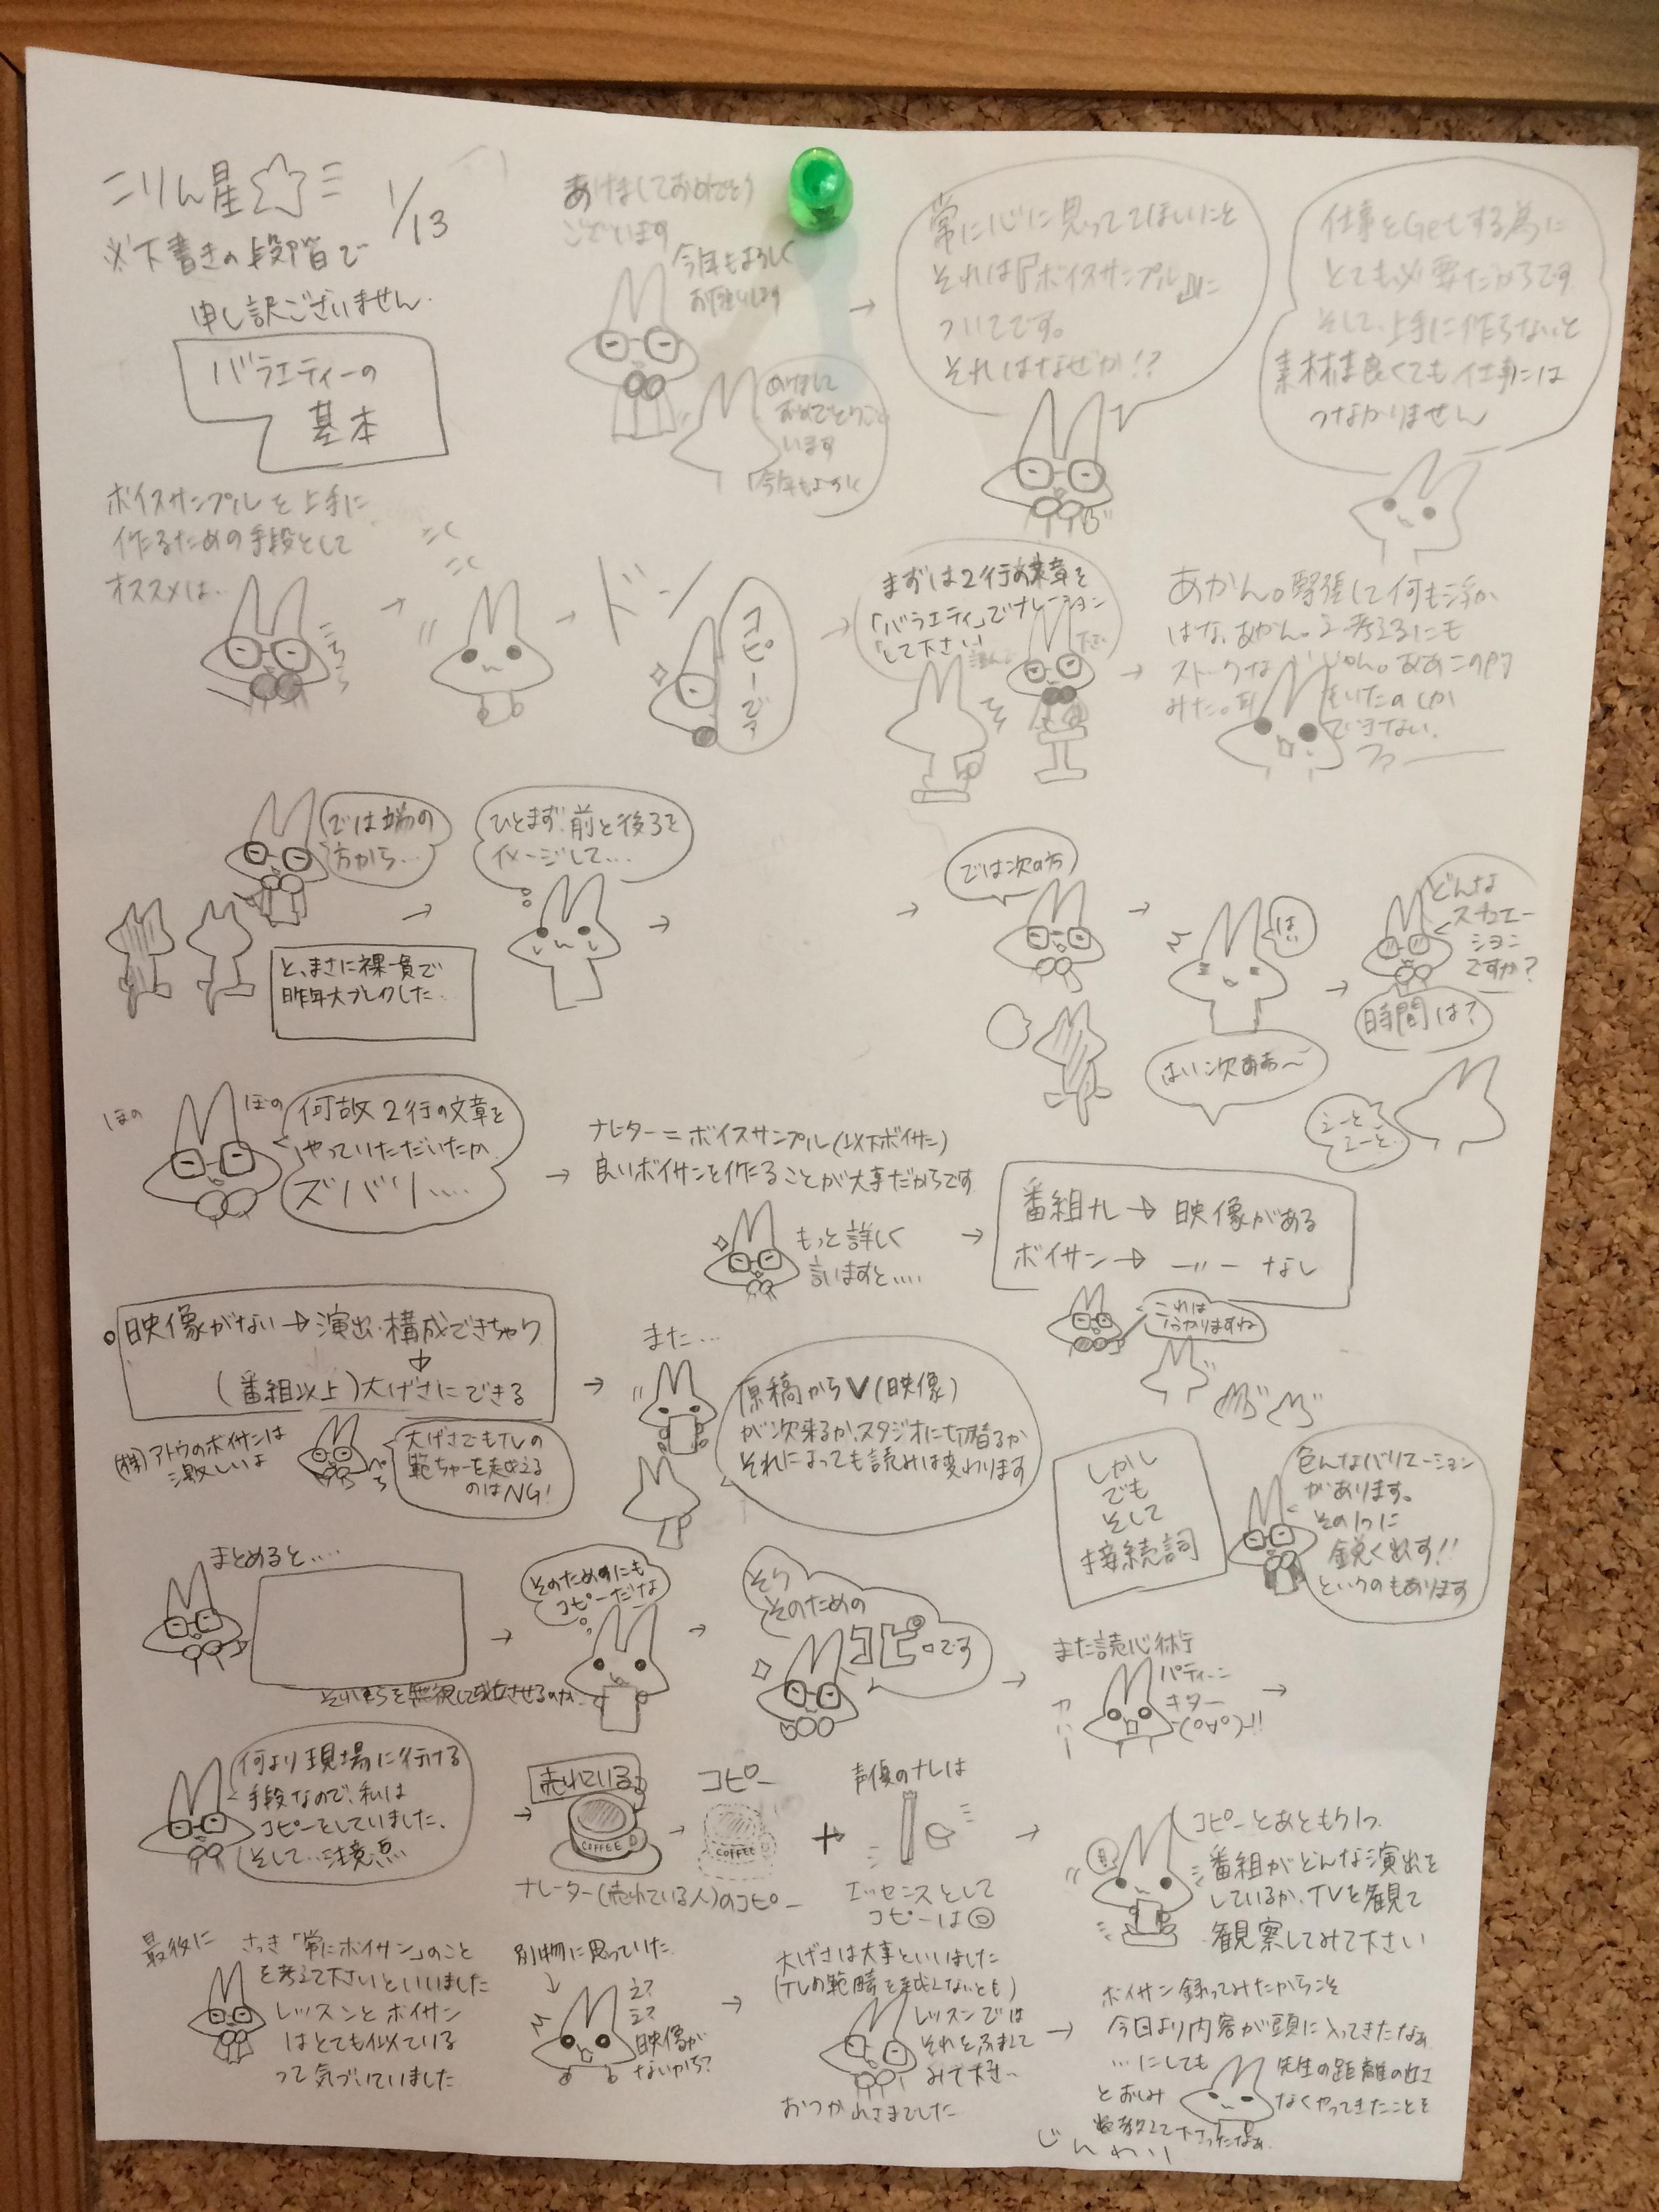 こりん星
1/13
※下書きの段階で
申し訳ございません
バラエティーの
基本
あけましておめでとう
ございます
今年もよろしく
お願いします
あけまして
おめでとうござ
います
今年もよろし
常に心に思っててほしいこと
それは『ボイスサンプル』に
ついてです。
それはなぜか!?
仕事をGetする為に
とても必要だからです
そして、上手に作らないと
素材は良くても仕事には
つながりません
ボイスサンプルを上手に
作るための手段として
オススメは…
ドン
コピーです
まずは2行の文章を
「バラエティ」でナレーション
して下さい
あかん。緊張して何も浮か
はな、あかん。
ストックな
みた。
できない。
では端の
方から…
と、まさに裸一貫で
昨年大ブレイクした
ひとまず前と後ろを
イメージして…
では次の方
はい
はい次ああ〜
どんな
スチュエー
ション
ですか?
時間は?
えーと
えーと
ほの
ほの
何故2行の文章を
やっていただいたか
ズバリ…
ナレーター=ボイスサンプル(以下ボイサン)
良いボイサンを作ることが大事だからです
もっと詳しく
言いますと…
番組ナレ→映像がある
ボイサン→ 〃 なし
これは
わかりますね
映像がない→演出・構成できちゃう
(番組以上)大げさにできる
(株)アトウのボイサンは
激しいよ
大げさでもTVの
範ちゅーを超える
のはNG!
また…
原稿からV(映像)
が次来るか、スタジオに切替るか
それによっても読みは変わります
しかし
でも
そして
接続詞
色んなバリエーション
があります。
その1つに
鋭く出す!!
というのもあります
まとめると…
それらを無視して
そのためにも
コピーだな
そう
そのための
コピーです
また読心術
パティーン
キター
(°∀°)!!
何より現場に行ける
手段なので、私は
コピーをしていました、
そして…注意点
売れている
COFFEE
コピー
COFFEE
ナレーター(売れている人)のコピー
+
声優のナレは
エッセンスとして
コピーは◎
コピーとあともう1つ
番組がどんな演出を
しているか、TVを観て
観察してみて下さい
最後に
さっき「常にボイサン」のこと
を考えて下さいといいました
レッスンとボイサン
はとても似ている
って気づいていました
別物に思っていた
え?
え?
映像が
ないから?
大げさは大事といいました
(TVの範疇を超えないとも)
レッスンでは
それをふまえて
みて下さい
おつかれさまでした
ボイサン録ってみたからこそ
今日より内容が頭に入ってきたなぁ
…にしても
先生の距離の
なくやってきたことを
とおしみ
教えて下さったなぁ
じんわり